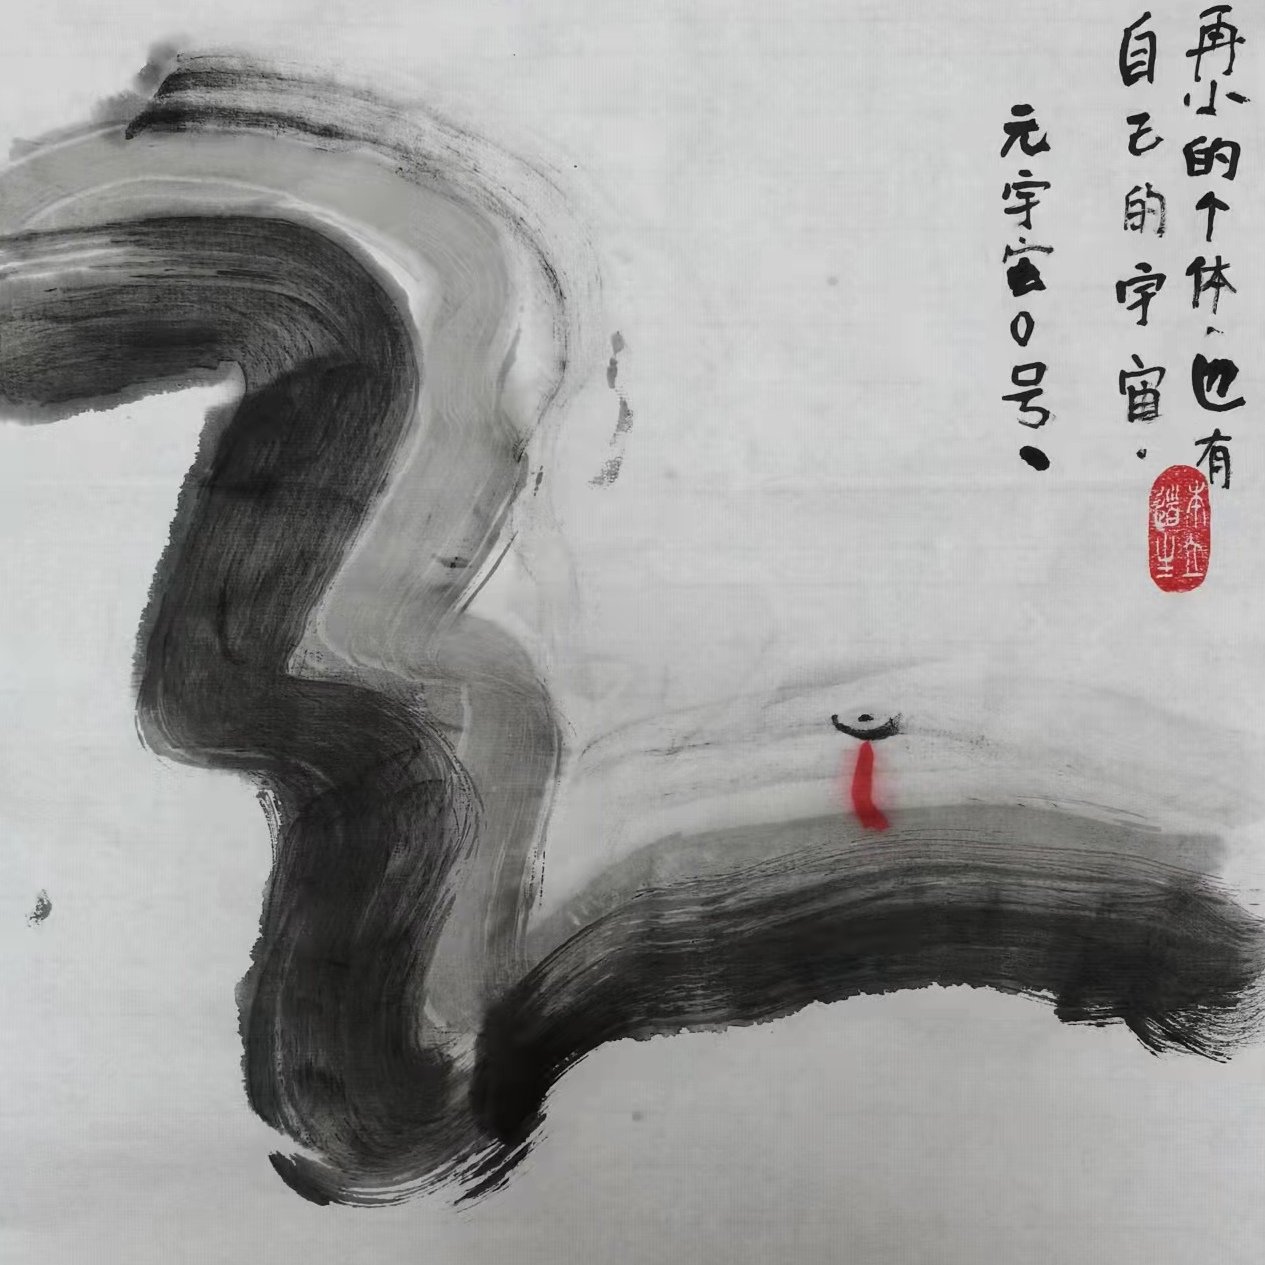 再小的个体、也有
自己的宇宙.
元宇宙0号、
本立
道生